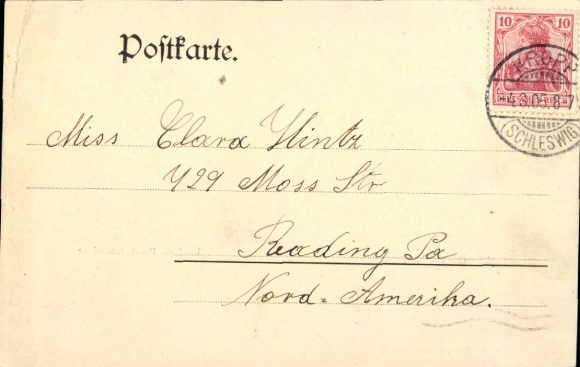 Postkarte.
10 10
KROPP
4.3.05.8
(SCHLESWIG
Miss Clara Hintz
429 Moss Str
Reading Pa
Nord-Amerika.